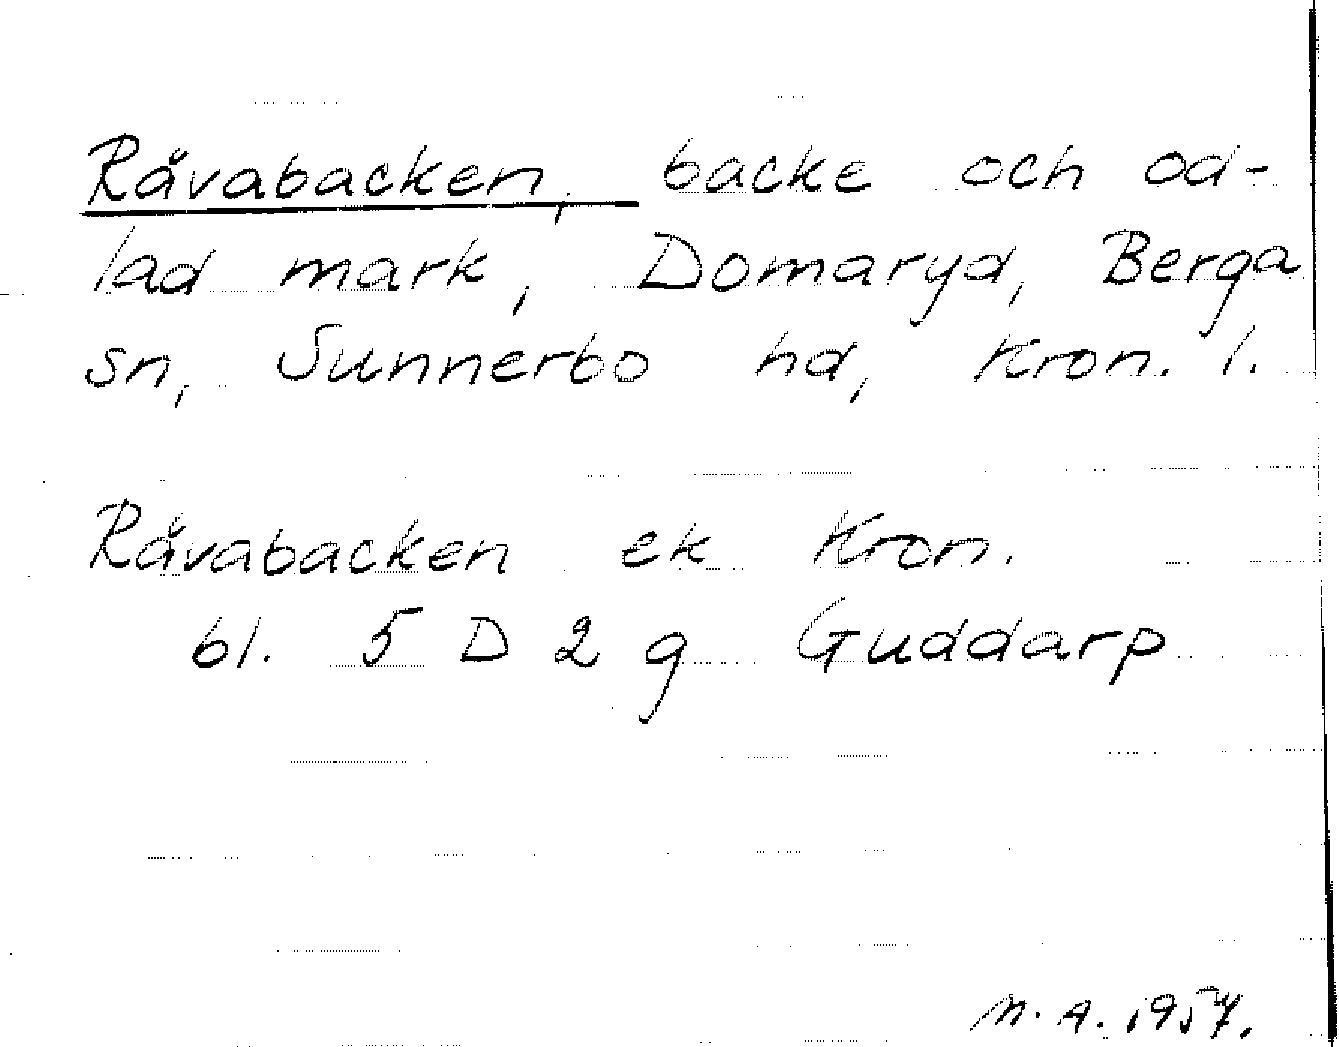 Råvabacken, backe och od-
lad mark, Domaryd, Berga
sn, Sunnerbo hd, Kron. l.
Råvabacken ek Kron.
bl. 5 D 2 g Guddarp
M. A. 1957.